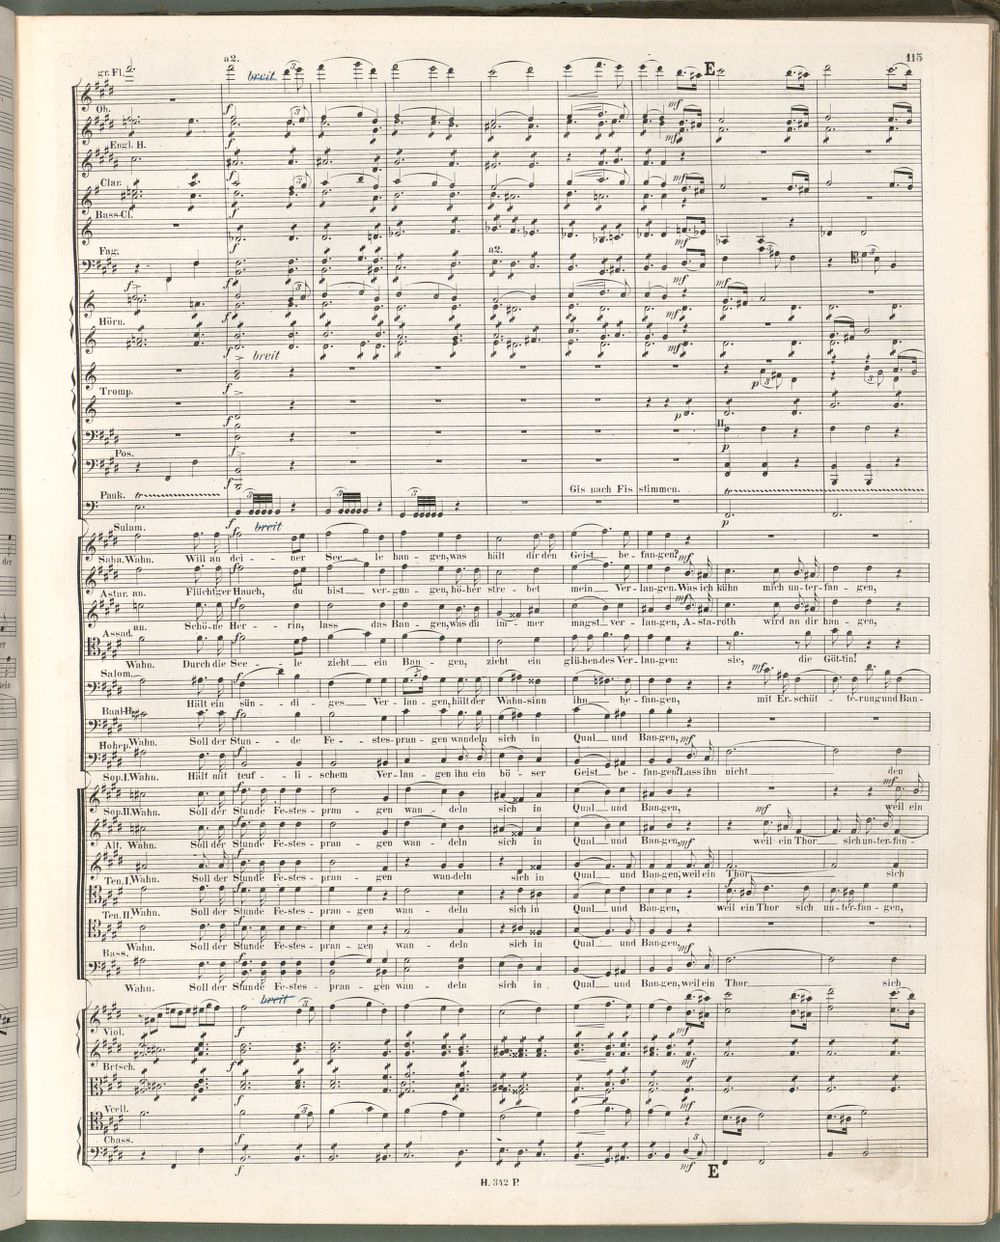 115
gr. Fl. a2. breit E
Ob.
Engl. H.
Clar.
Bass-Cl.
Fag. a2.
Hörn.
breit
Tromp.
II.
Pos.
Gis nach Fis stimmen.
Pauk.
breit
Sulam.
Wahn. Will an dei - ner See - le han - gen, was hält dir den Geist be - fan - gen?
Saba.
an. Flücht'ger Hauch, du bist ver - gan - gen, hö - her stre - bet mein Ver - lan - gen. Was ich kühn mich un - ter - fan - gen,
Astar.
an. Schö - ne Her - rin, lass das Ban - gen, was du im - mer magst ver - lan - gen, A - sta - roth wird an dir han - gen,
Assad.
Wahn. Durch die See - le zieht ein Ban - gen, zieht ein glü - hen - des Ver - lan - gen: sie, die Göt - tin!
Salom.
Hält ein sün - di - ges Ver - lan - gen, hält der Wahn - sinn ihn be - fan - gen, mit Er - schüt - te - rung und Ban -
Baal-H.
Wahn. Soll der Stun - de Fe - stes - pran - gen wandeln sich in Qual und Ban - gen,
Hohep.
Wahn. Hält mit teuf - li - schem Ver - lan - gen ihn ein bö - ser Geist be - fan - gen? Lass ihn nicht den
Sop. I.
Wahn. Soll der Stunde Fe - stes - pran - gen wan - deln sich in Qual und Ban - gen, weil ein
Sop. II.
Wahn. Soll der Stunde Fe - stes - pran - gen wan - deln sich in Qual und Ban - gen, weil ein Thor sich un - ter - fan -
Alt.
Wahn. Soll der Stunde Fe - stes - pran - gen wan - deln sich in Qual und Ban - gen, weil ein Thor sich
Ten. I.
Wahn. Soll der Stunde Fe - stes - pran - gen wan - deln sich in Qual und Ban - gen, weil ein Thor sich un - ter - fan - gen,
Ten. II.
Wahn. Soll der Stunde Fe - stes - pran - gen wan - deln sich in Qual und Ban - gen,
Bass.
Wahn. Soll der Stunde Fe - stes - pran - gen wan - deln sich in Qual und Ban - gen, weil ein Thor sich
breit
Viol.
Brtsch.
Vcell.
Cbass.
E
H. 342 P.